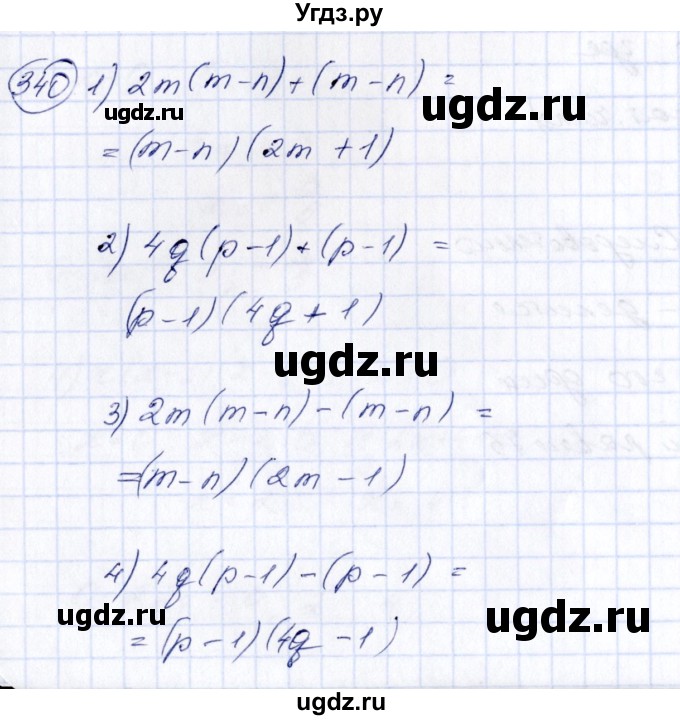 Угдз.ру
340 1) 2m(m-n)+(m-n)=
ugdz.ru ugdz.ru
=(m-n)(2m+1)
2) 4q(p-1)+(p-1) =
(p-1)(4q+1)
ugdz.ru
3) 2m(m-n)-(m-n) =
=(m-n)(2m-1)
4) 4q(p-1)-(p-1) =
ugdz.ru ugdz.ru
=(p-1)(4q-1)
ugdz.ru